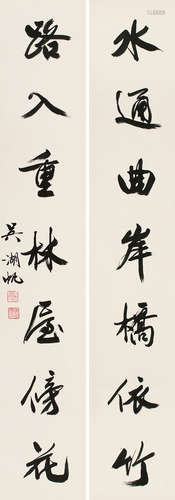 水通曲岸橋依竹
路入重林屋傍花
吳湖帆